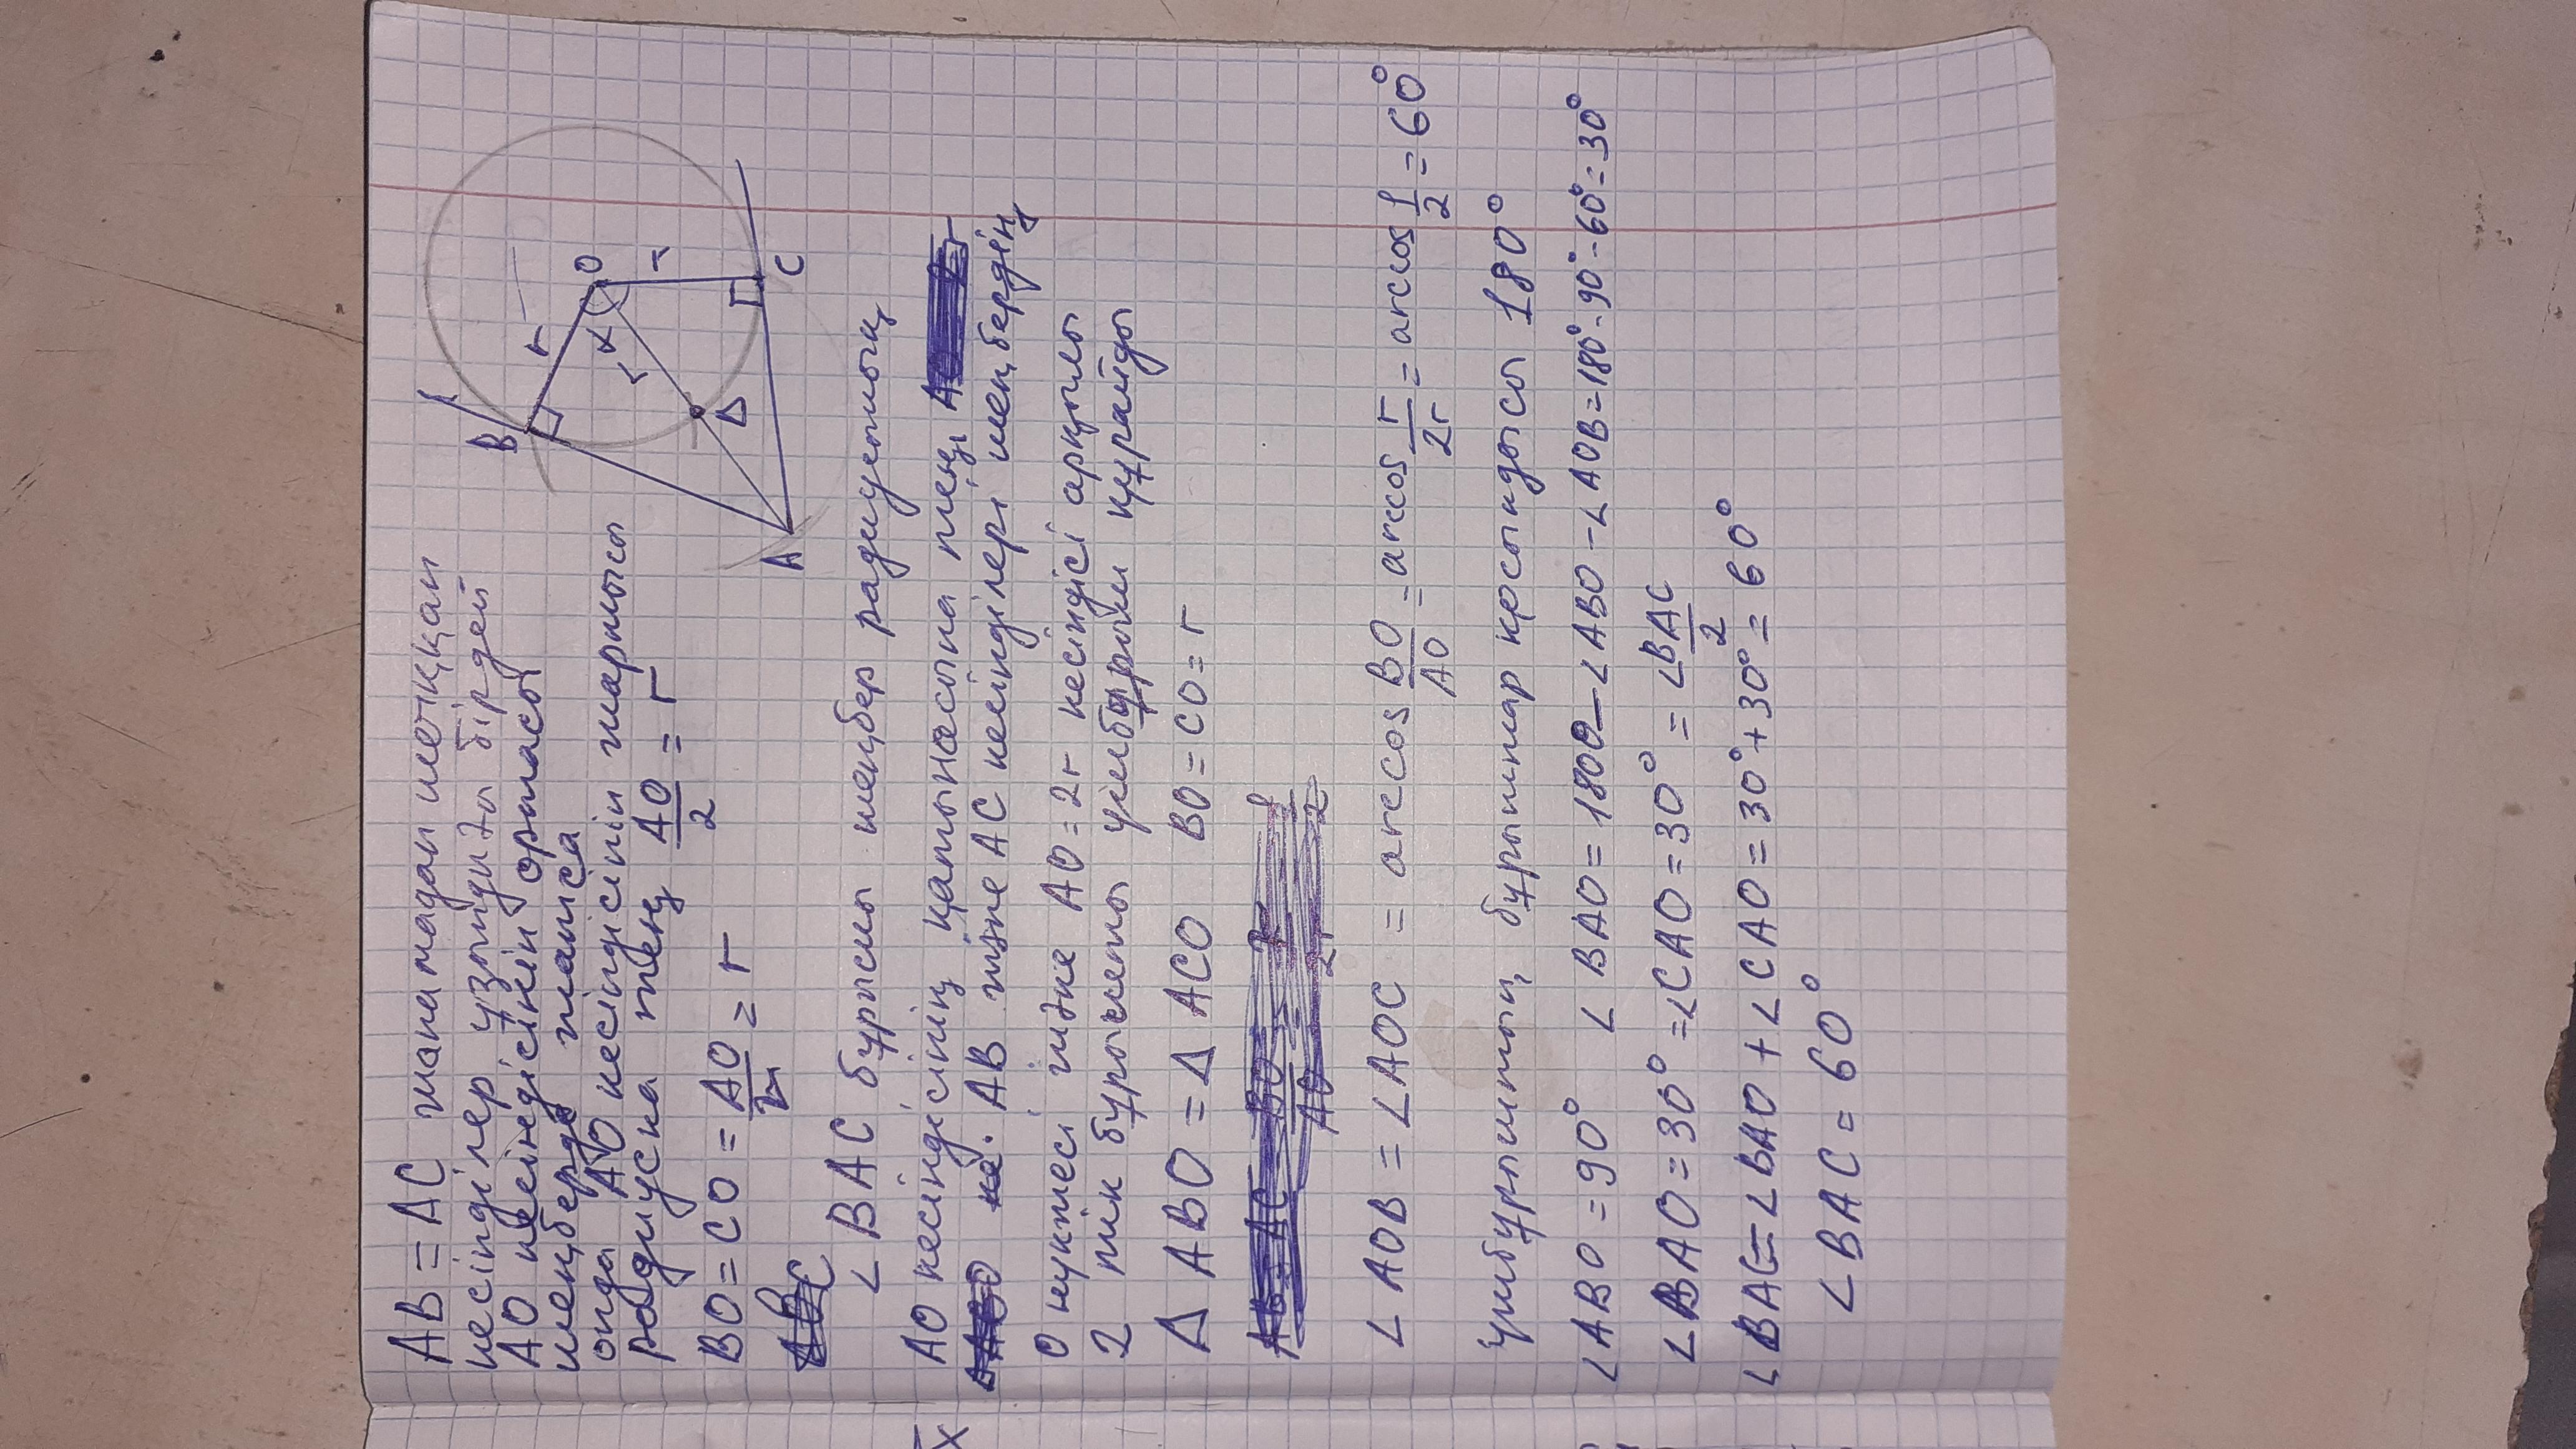 AB = AC жанамадан шыққан
кесінділер ұзындығы бірдей
AO кесіндісінің ортасы
шеңберде жатса
онда AO кесіндісінің жартысы
радиусқа тең AO/2 = r
BO = CO = AO/2 = r
∠BAC бұрышы шеңбер радиусының
AO кесіндісінің қатынасына тең
AB және AC кесінділері шеңбердің
O нүктесі және AO = 2r кесіндісі арқылы
2 тік бұрышты үшбұрыш құрайды
Δ ABO = Δ ACO BO = CO = r
∠AOB = ∠AOC = arccos BO/AO = arccos r/2r = arccos 1/2 = 60°
Үшбұрыштың бұрыштар қосындысы 180°
∠ABO = 90° ∠BAO = 180° - ∠ABO - ∠AOB = 180° - 90° - 60° = 30°
∠BAO = 30° = ∠CAO = 30° = ∠BAC/2
∠BAC = ∠BAO + ∠CAO = 30° + 30° = 60°
∠BAC = 60°
B
r
O
r
α
r
D
C
A
x